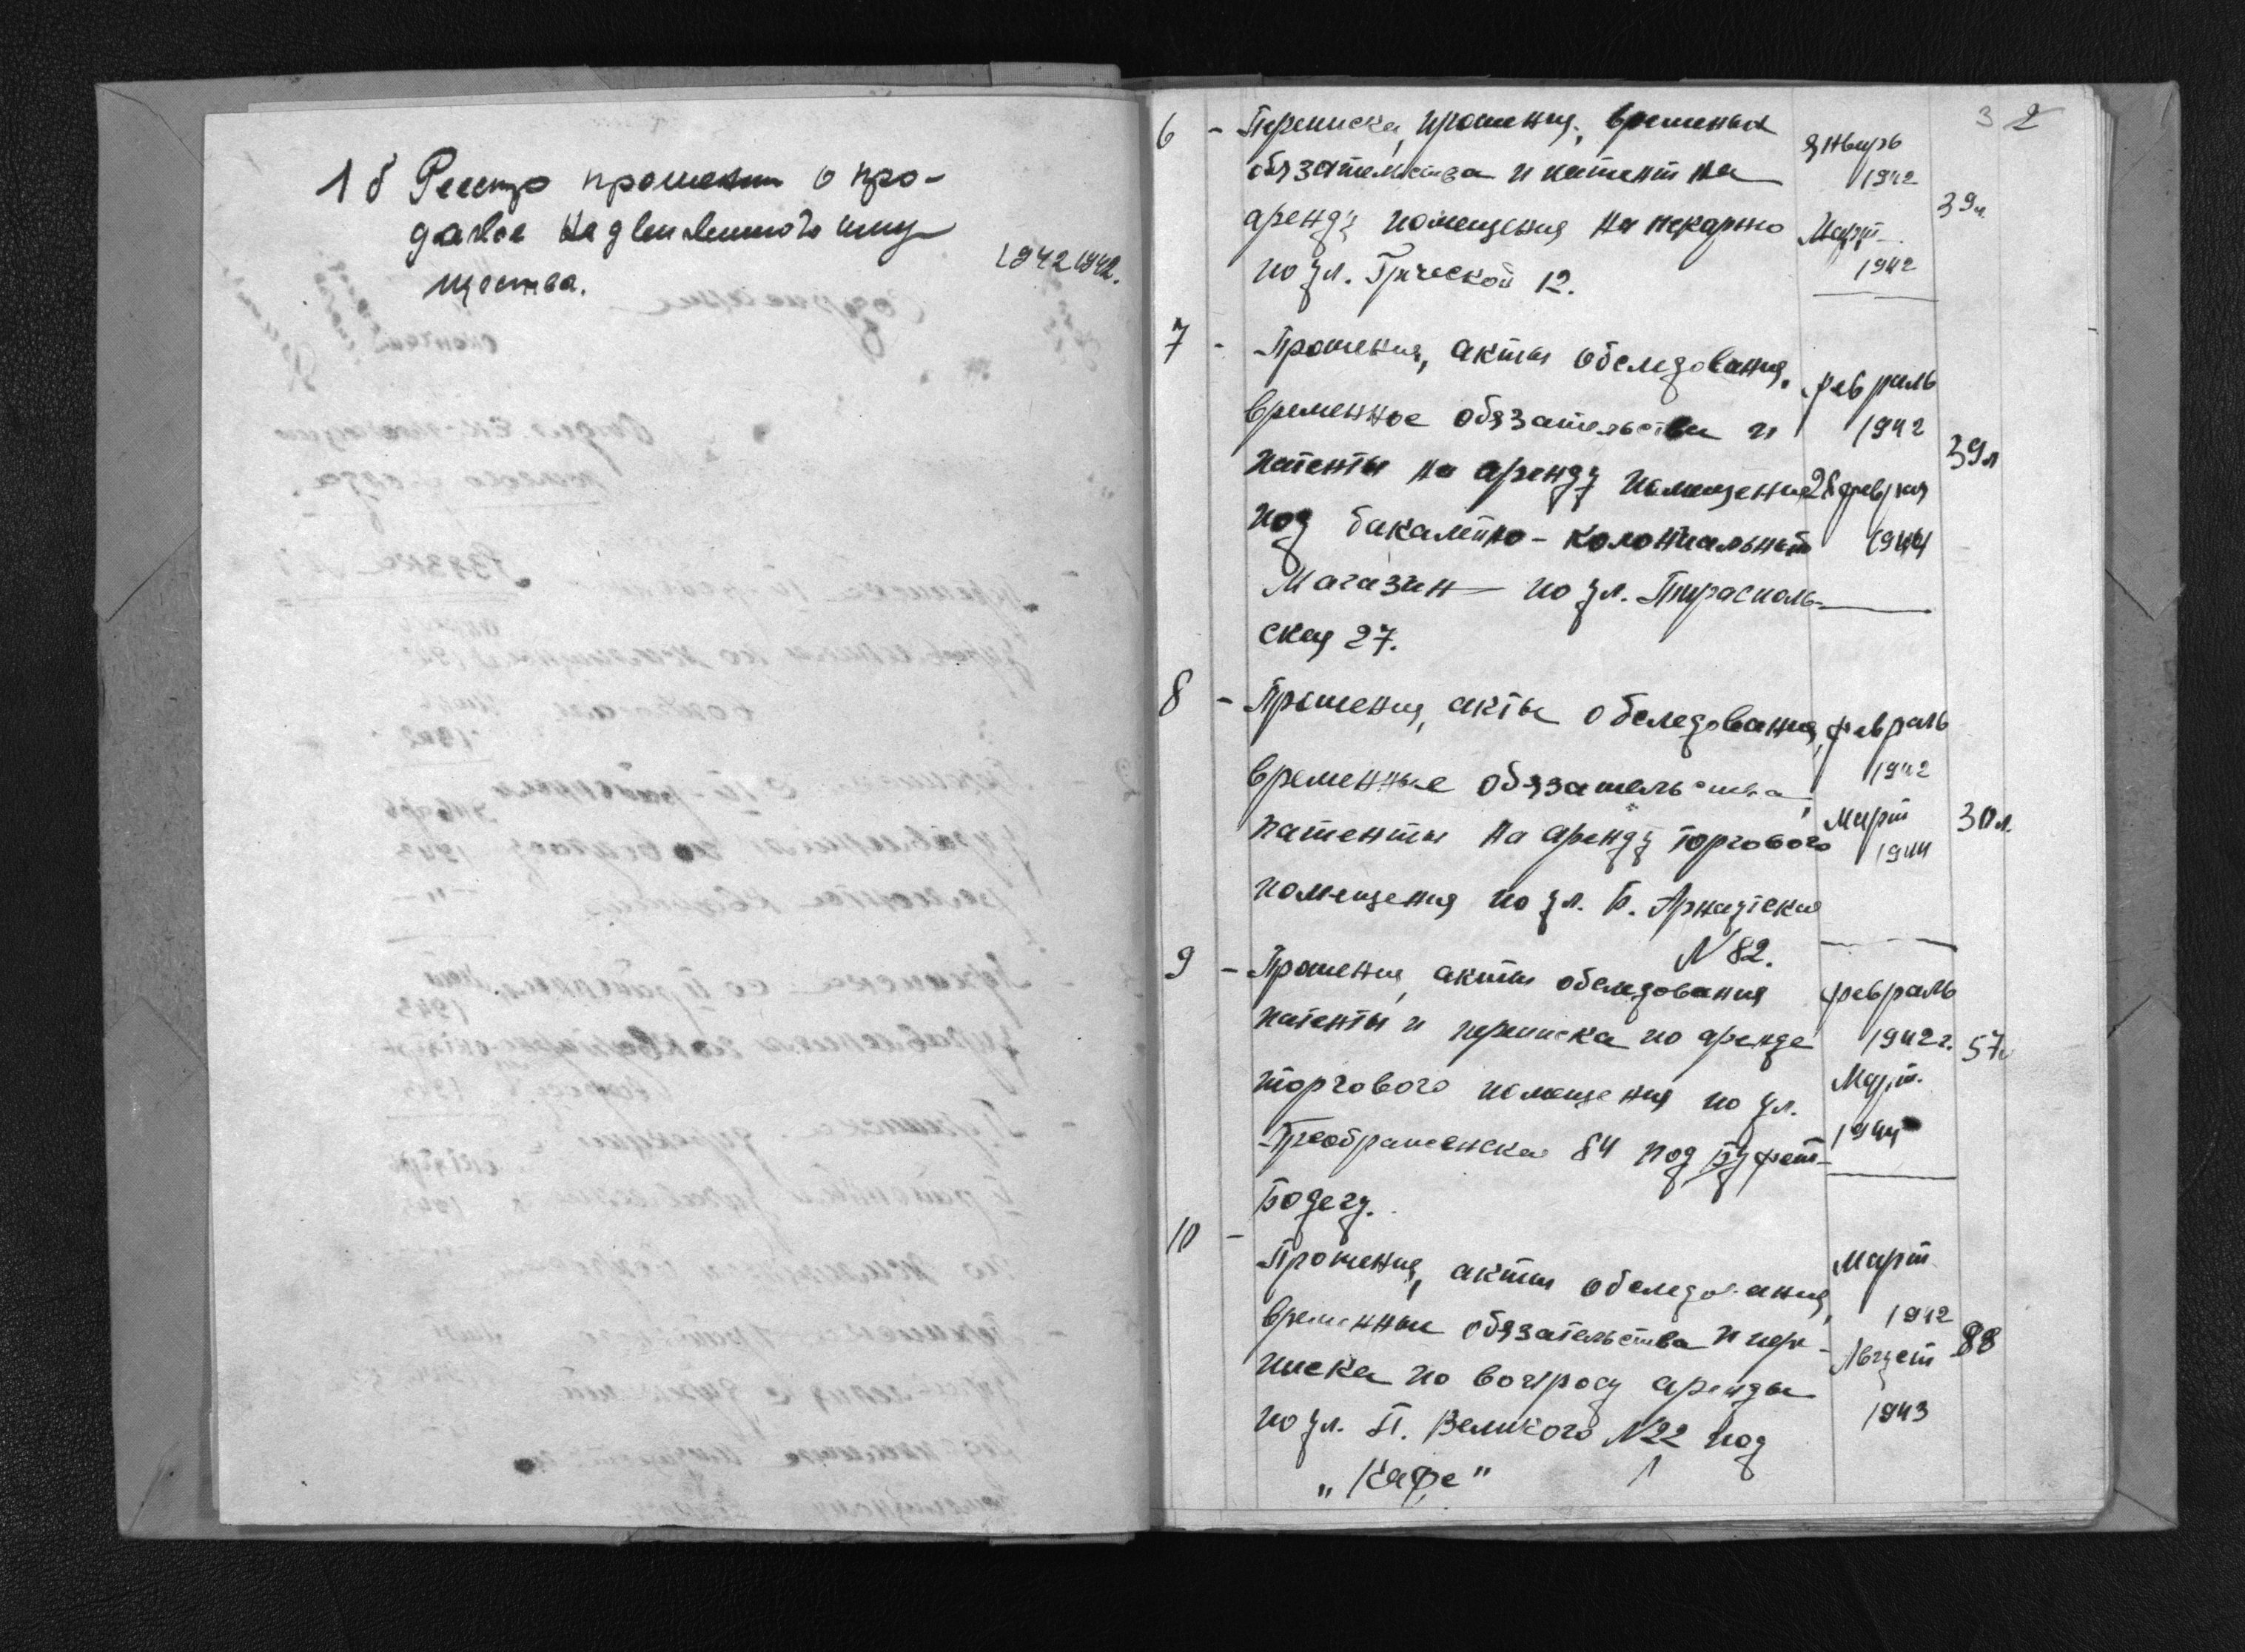 1б Реестр прошений о про-
даже недвижимого иму
щества.
1942 1942.
3 2
6 - Переписка, прошения, временные
обязательства и патент на
аренду помещения на пекарню
по ул. Греческой 12.
Январь
1942
Март
1942
39л.
7 - Прошения, акты обследования,
временное обязательства и
патенты на аренду помещения
под бакалейно-колониальный
магазин по ул. Тирасполь-
ская 27.
февраль
1942
28 февраля
1944
39л
8 - Прошения, акты обследования,
временные обязательства,
патенты на аренду торгового
помещения по ул. Б. Арнаутская
N 82.
февраль
1942
Март
1944
30л.
9 - Прошения, акты обследования
патенты и переписка по аренде
торгового помещения по ул.
Преображенская 84 под буфет-
Бодегу.
февраль
1942г.
Март.
1944
57л
10 -
Прошения, акты обследования,
временные обязательства и пере-
писка по вопросу аренды
по ул. П. Великого N22 под
„Кафе"
Март
1942
Август
1943
88